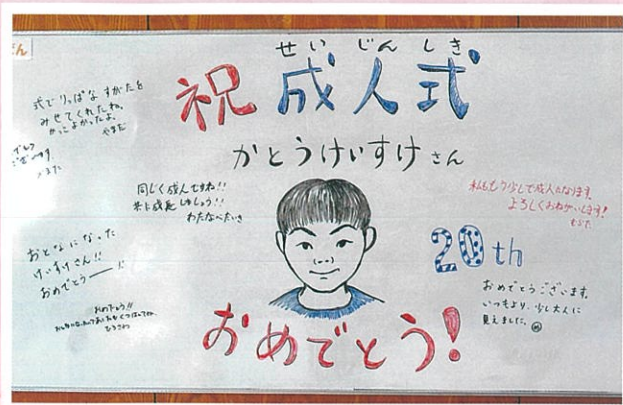 せいじんしき
祝 成人式
かとうけいすけ さん
式でりっぱな すがたを
みせてくれたね。
かっこよかったよ。
やまだ
同じく成人ですね!!
共に成長しましょう!!
わたなべたいき
私ももう少しで成人になります。
よろしくおねがいします!
おとなになった
けいすけさん!!
おめでとうー!!
20th
おめでとうございます。
いつもより、少し大人に
見えました。
おめでとう!!
ひろさわ
おめでとう!